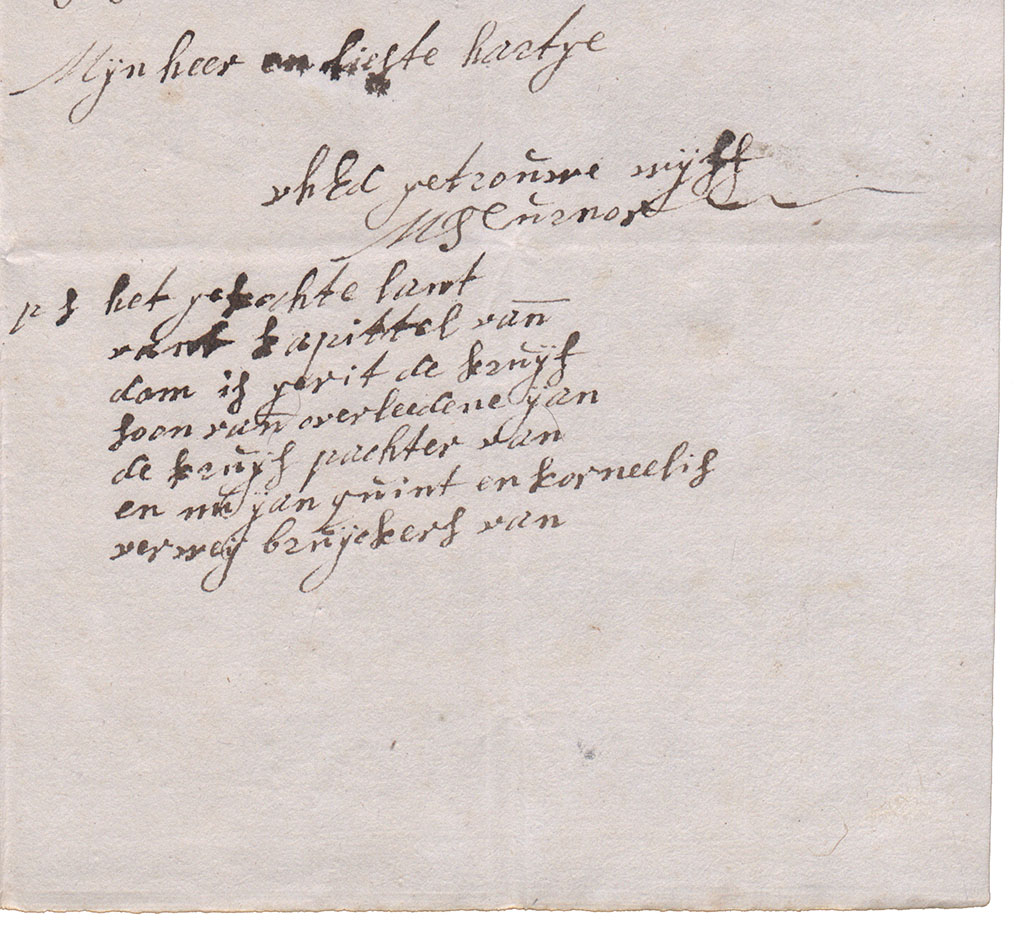 Mijn heer en lieste hartje
uhEd getrouwe wijff
MTurnor
ps het gekochte lant
vant kapittel van
dom is gerit de kruijs
soon van overleedene jan
de kruijs pachter van
en nu jan quint en korneelis
verweij bruijckers van